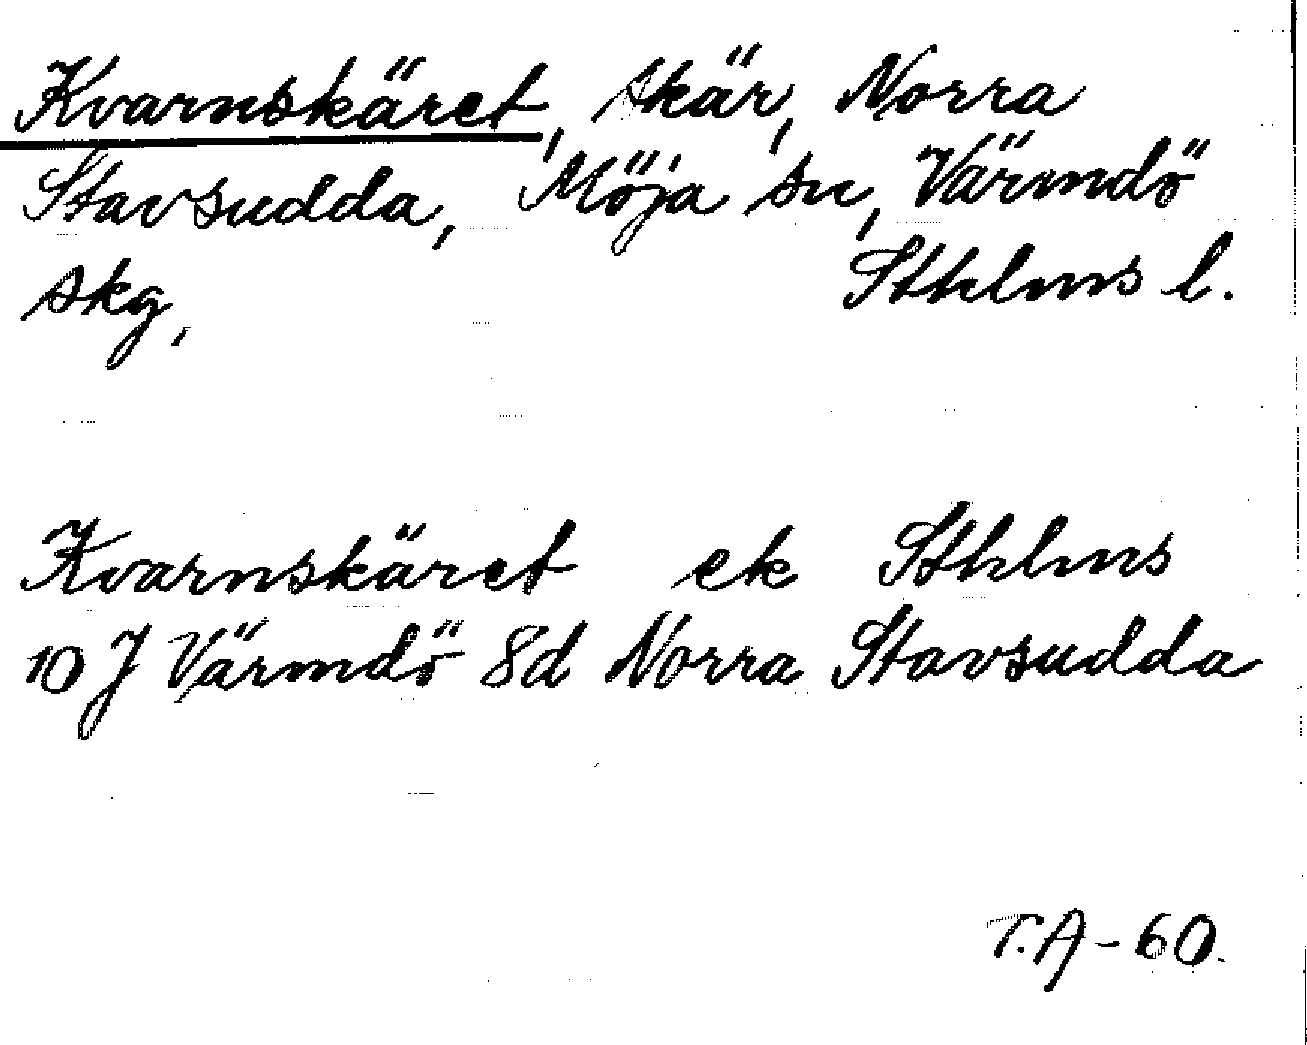 Kvarnskäret, skär, Norra
Stavsudda, Möja sn, Värmdö
skg, Sthlms l.
Kvarnskäret ek Sthlms
10 J Värmdö 8d Norra Stavsudda
T.A-60.